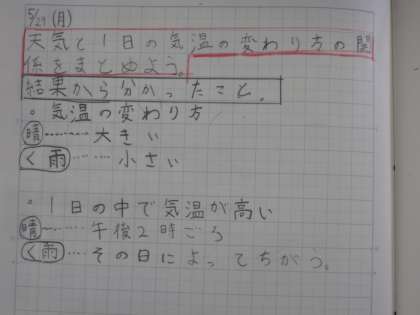 5/29 (月)
天気と1日の気温の変わり方の関
係をまとめよう。
結果から分かったこと。
・気温の変わり方
晴………大きい
く雨……小さい
・1日の中で気温が高い
晴………午後2時ごろ
く雨……その日によってちがう。